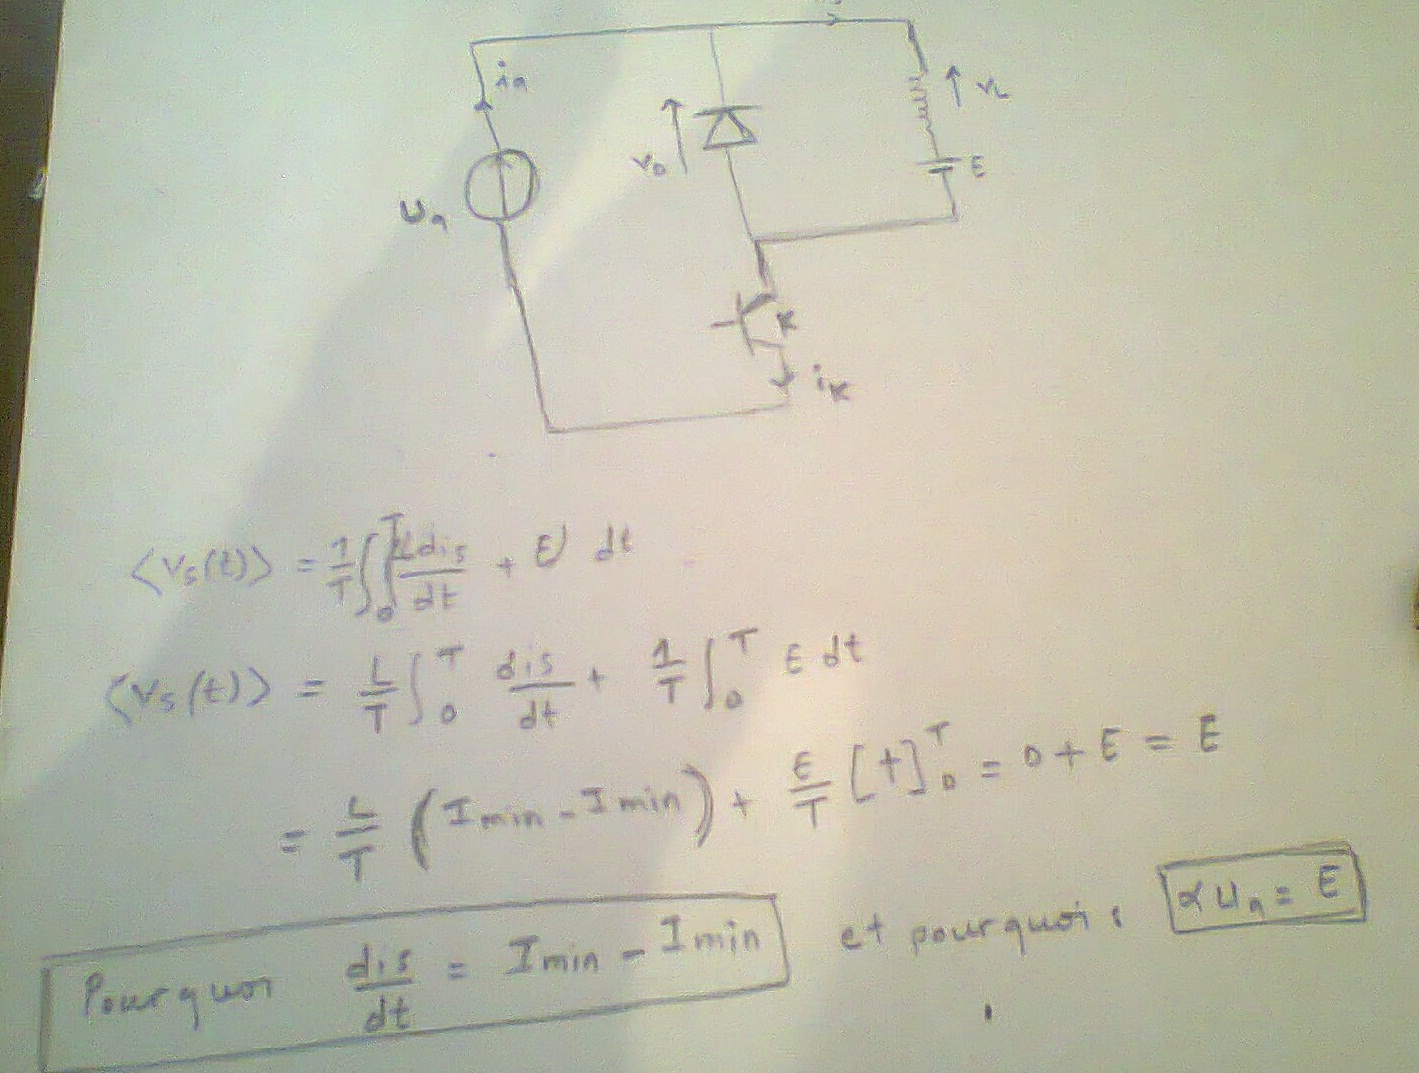 ia
vL
vD
E
Ua
K
iK
<vs(t)> = 1/T ∫₀ᵀ (L dis/dt + E) dt
<vs(t)> = L/T ∫₀ᵀ dis/dt + 1/T ∫₀ᵀ E dt
= L/T (Imin - Imin) + E/T [t]₀ᵀ = 0 + E = E
Pourquoi dis/dt = Imin - Imin et pourquoi : αUa = E